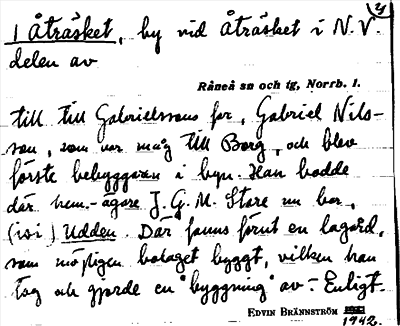 4
1 Åträsket, by vid Åträsket i N.V.
delen av
Råneå sn och tg, Norrb. l.
till till Gabrielssons far, Gabriel Nils-
son, som var måg till Borg, och blev
förste bebyggaren i byn. Han bodde
där hem.-ägare J. G. M. Stare nu bor,
(isi) Udden. Där fanns förut en lagård,
som möjligen bolaget byggt, vilken han
tog och gjorde en "byggning" av: Enligt
EDVIN BRÄNNSTRÖM
1942.